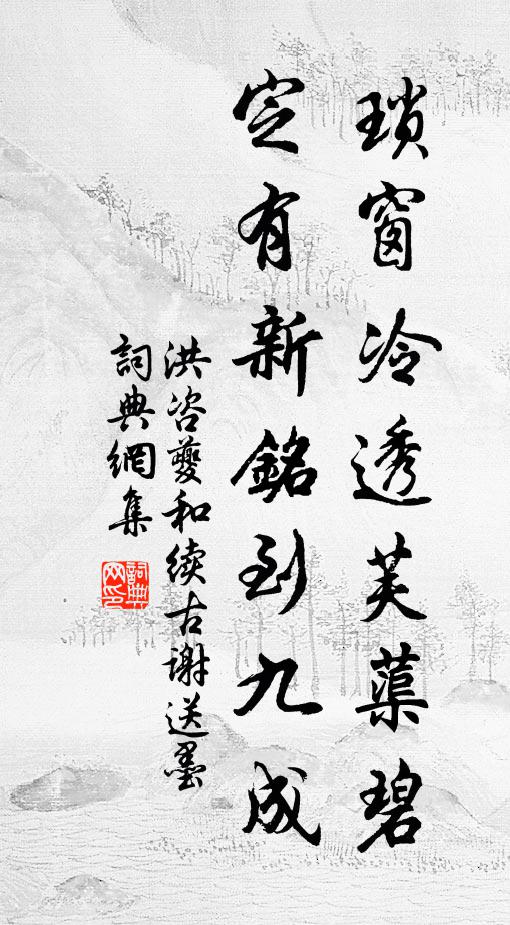 瑣窗冷透芙蕖碧
定有新銘到九成
洪咨夔和续古謝送墨
詞典網集
詞典网印